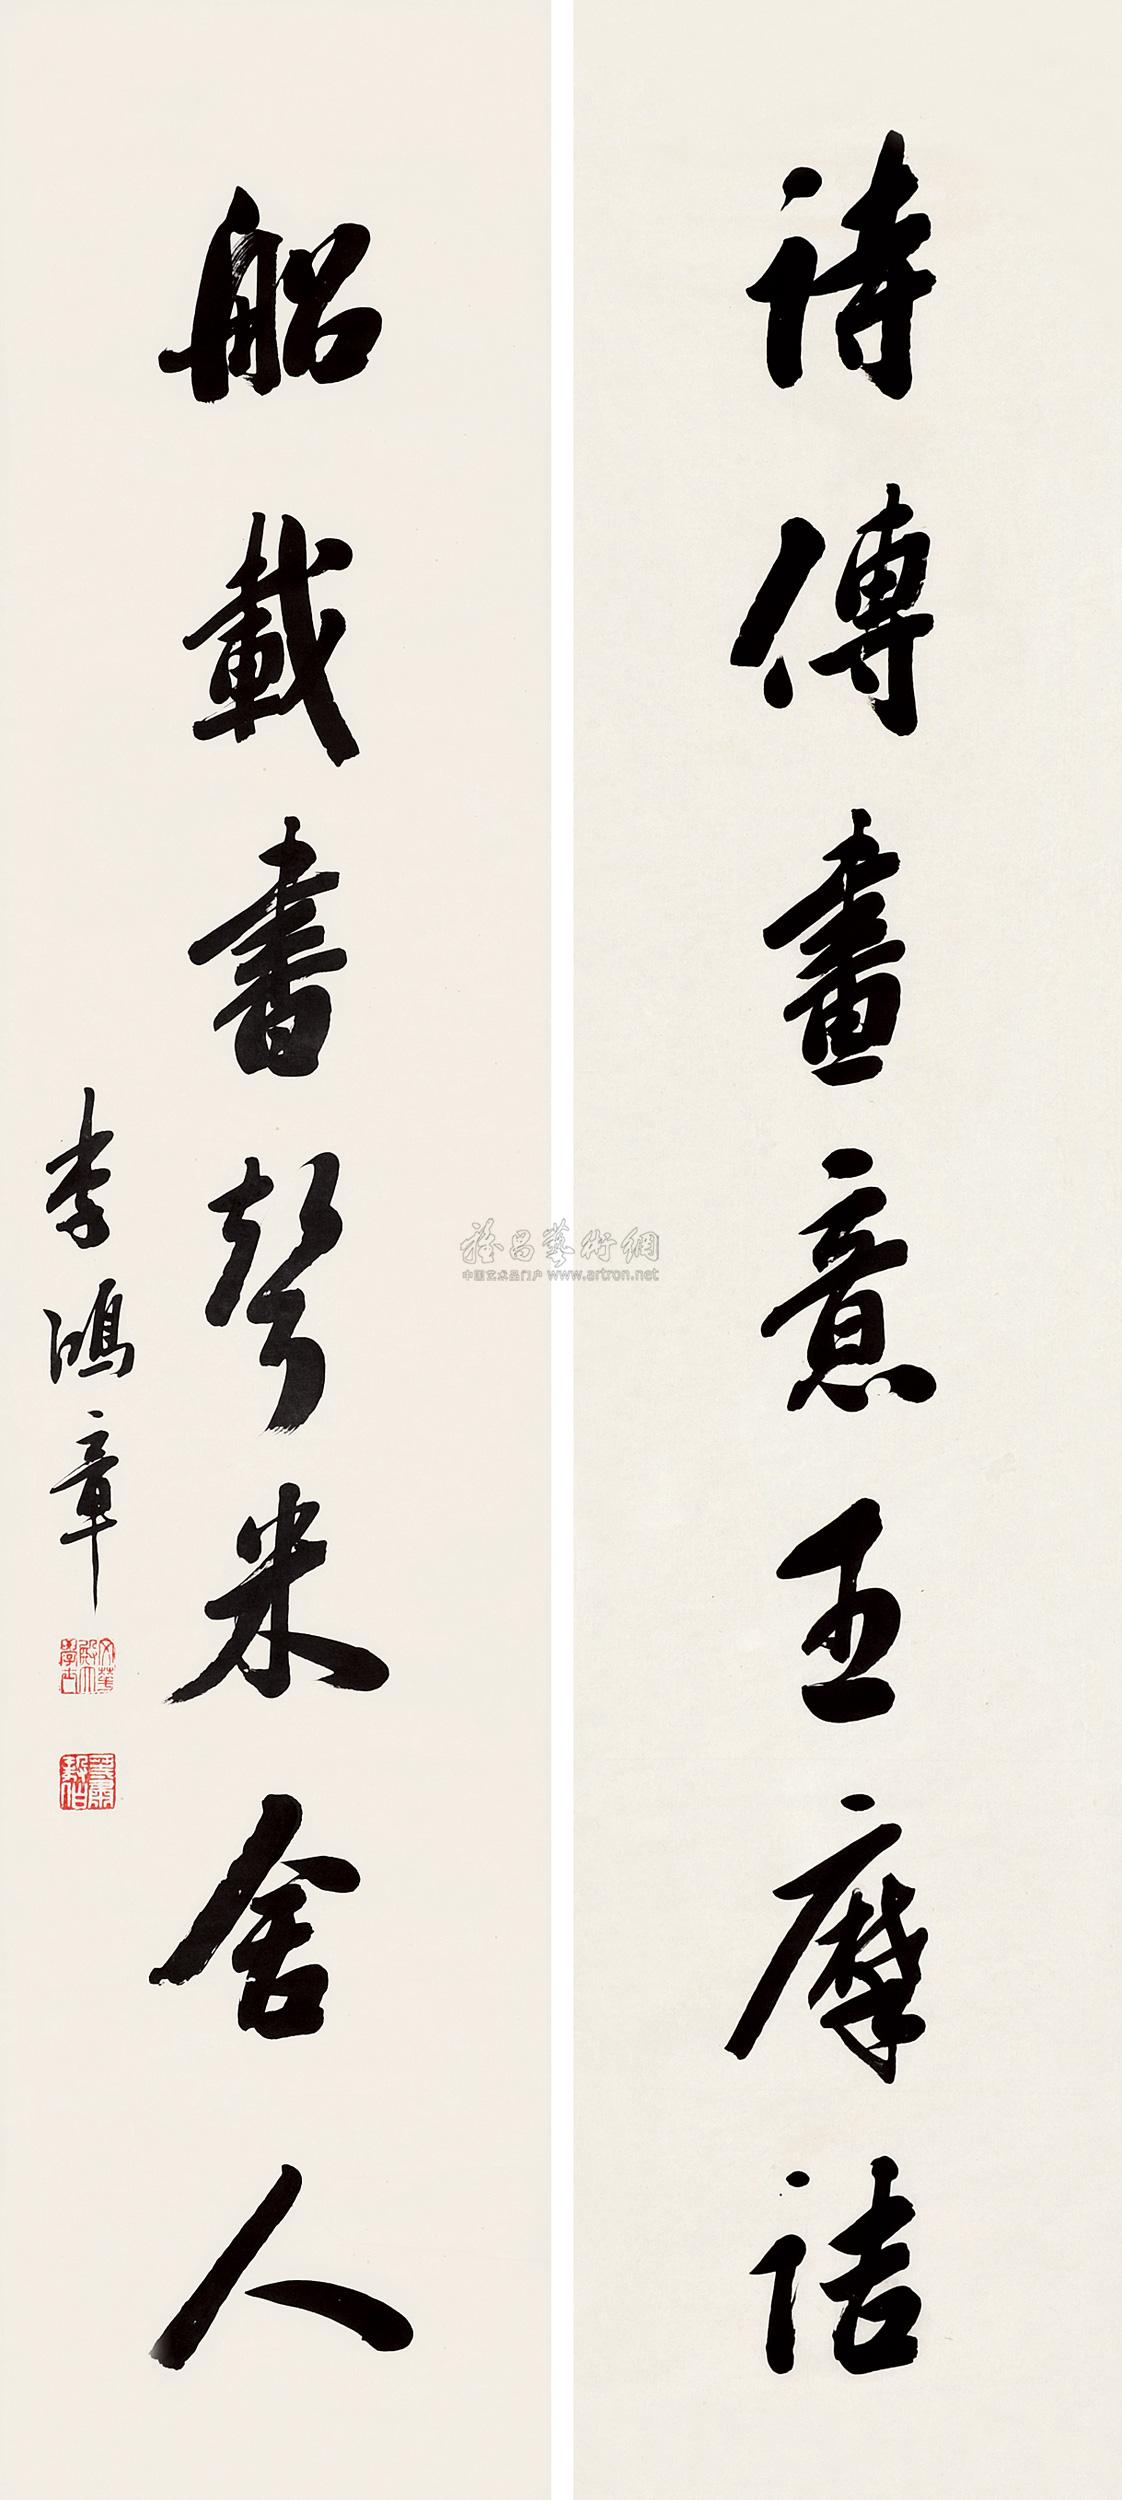 詩傳畫意王摩詰
船載書聲米舍人
李鴻章
文華殿大學士
雅昌藝術網
中国艺术品门户 www.artron.net